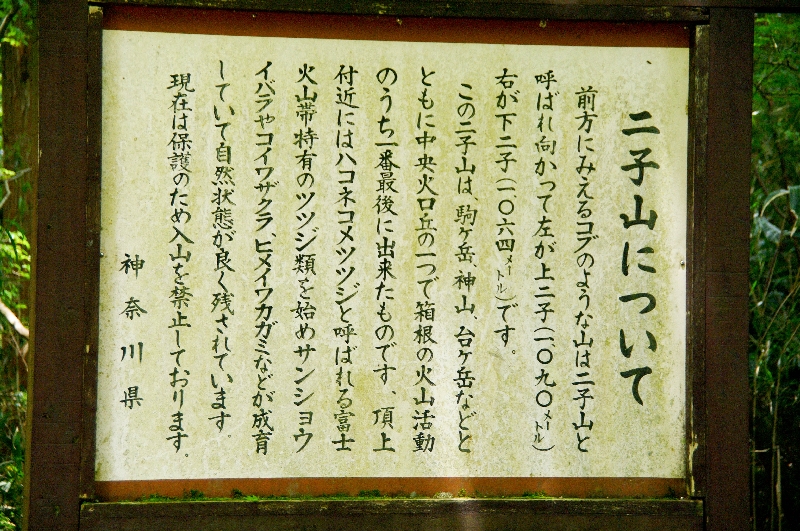 二子山について
前方にみえるコブのような山は二子山と
呼ばれ向かって左が上二子(一、〇九〇メートル)
右が下二子(一、〇六四メートル)です。
この二子山は、駒ヶ岳、神山、台ヶ岳などと
ともに中央火口丘の一つで箱根の火山活動
のうち一番最後に出来たものです、頂上
付近にはハコネコメツツジと呼ばれる富士
火山帯特有のツツジ類を始めサンショウ
イバラやコイワザクラ、ヒメイワカガミなどが成育
していて自然状態が良く残されています。
現在は保護のため入山を禁止しております。
神奈川県